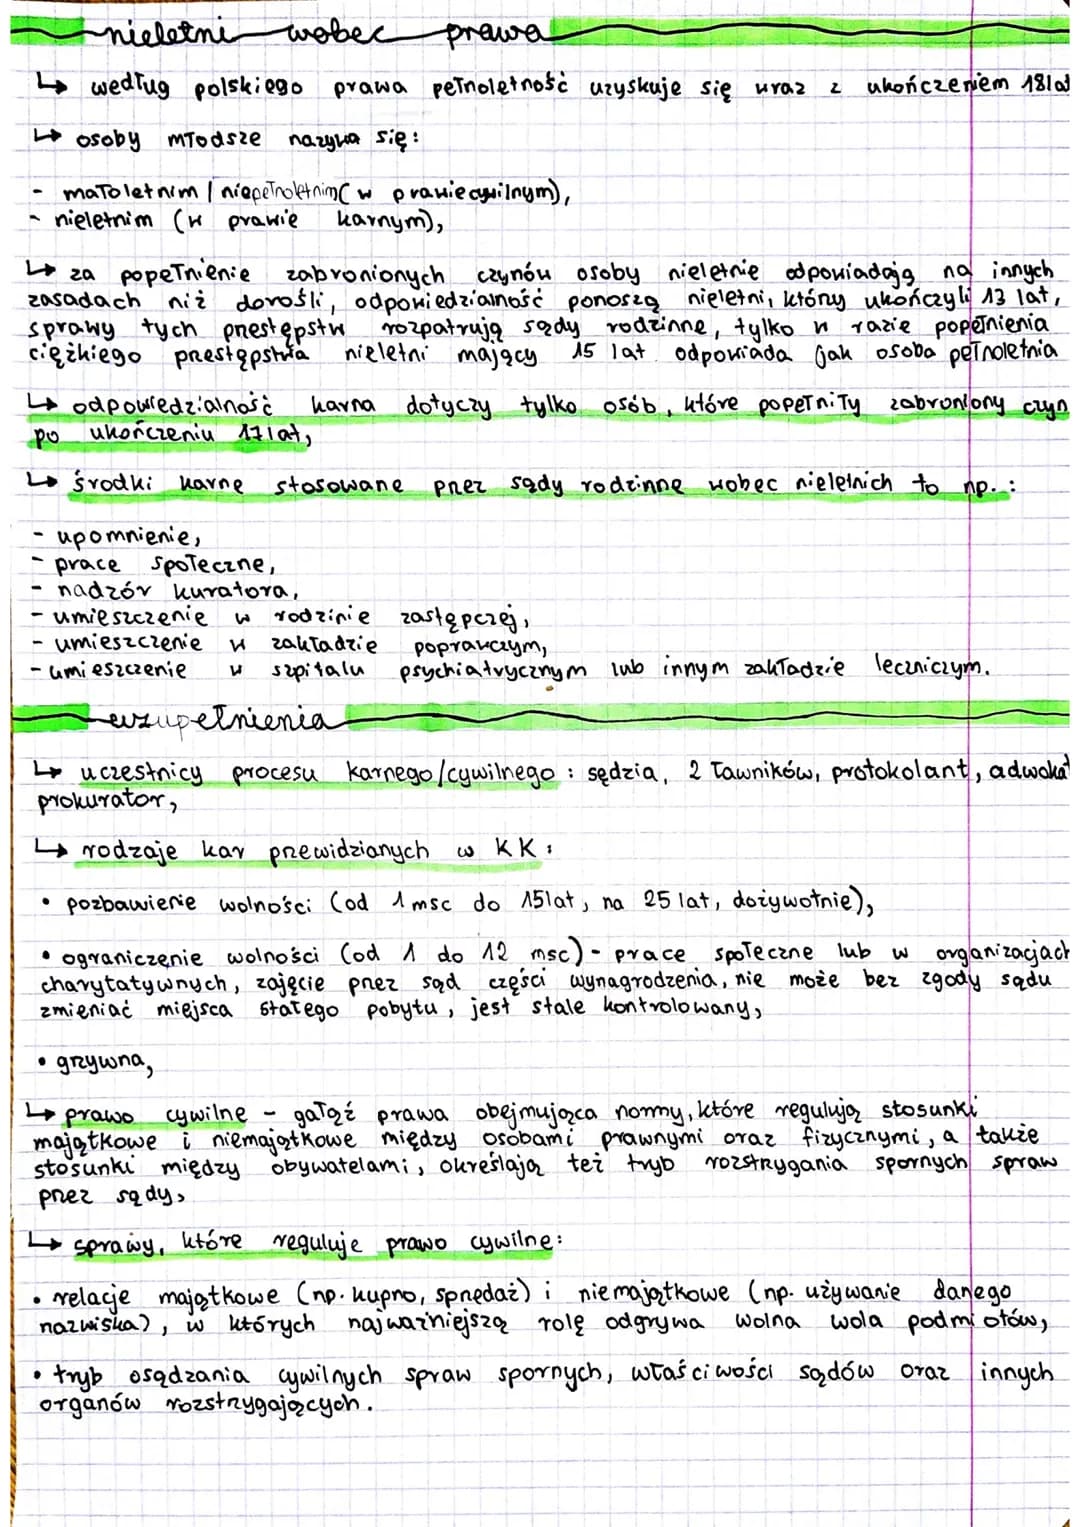 nieletni wobec prawa
↳ według polskiego prawa pełnoletność uzyskuje się wraz z ukończeniem 18 lat
↳ osoby młodsze nazywa się:
- małoletnim / niepełnoletnim (w prawie cywilnym),
- nieletnim (w prawie karnym),
↳ za popełnienie zabronionych czynów osoby nieletnie odpowiadają na innych
zasadach niż dorośli, odpowiedzialność ponoszą nieletni, którzy ukończyli 13 lat,
sprawy tych przestępstw rozpatrują sądy rodzinne, tylko w razie popełnienia
ciężkiego przestępstwa nieletni mający 15 lat odpowiada jak osoba pełnoletnia
↳ odpowiedzialność karna dotyczy tylko osób, które popełniły zabroniony czyn
po ukończeniu 17 lat,
↳ środki karne stosowane przez sądy rodzinne wobec nieletnich to np.:
- upomnienie,
- prace społeczne,
- nadzór kuratora,
- umieszczenie w rodzinie zastępczej,
- umieszczenie w zakładzie poprawczym,
- umieszczenie w szpitalu psychiatrycznym lub innym zakładzie leczniczym.
uzupełnienia
↳ uczestnicy procesu karnego/cywilnego: sędzia, 2 ławników, protokolant, adwokat
prokurator,
↳ rodzaje kar przewidzianych w KK:
• pozbawienie wolności (od 1 msc do 15 lat, na 25 lat, dożywotnie),
• ograniczenie wolności (od 1 do 12 msc) - prace społeczne lub w organizacjach
charytatywnych, zajęcie przez sąd części wynagrodzenia, nie może bez zgody sądu
zmieniać miejsca stałego pobytu, jest stale kontrolowany,
• grzywna,
↳ prawo cywilne - gałąź prawa obejmująca normy, które regulują stosunki
majątkowe i niemajątkowe między osobami prawnymi oraz fizycznymi, a także
stosunki między obywatelami, określają też tryb rozstrygania spornych spraw
przez sądy,
↳ sprawy, które reguluje prawo cywilne:
• relacje majątkowe (np. kupno, sprzedaż) i niemajątkowe (np. używanie danego
nazwiska), w których najważniejszą rolę odgrywa wolna wola podmiotów,
• tryb osądzania cywilnych spraw spornych, właściwości sądów oraz innych
organów rozstrzygających.